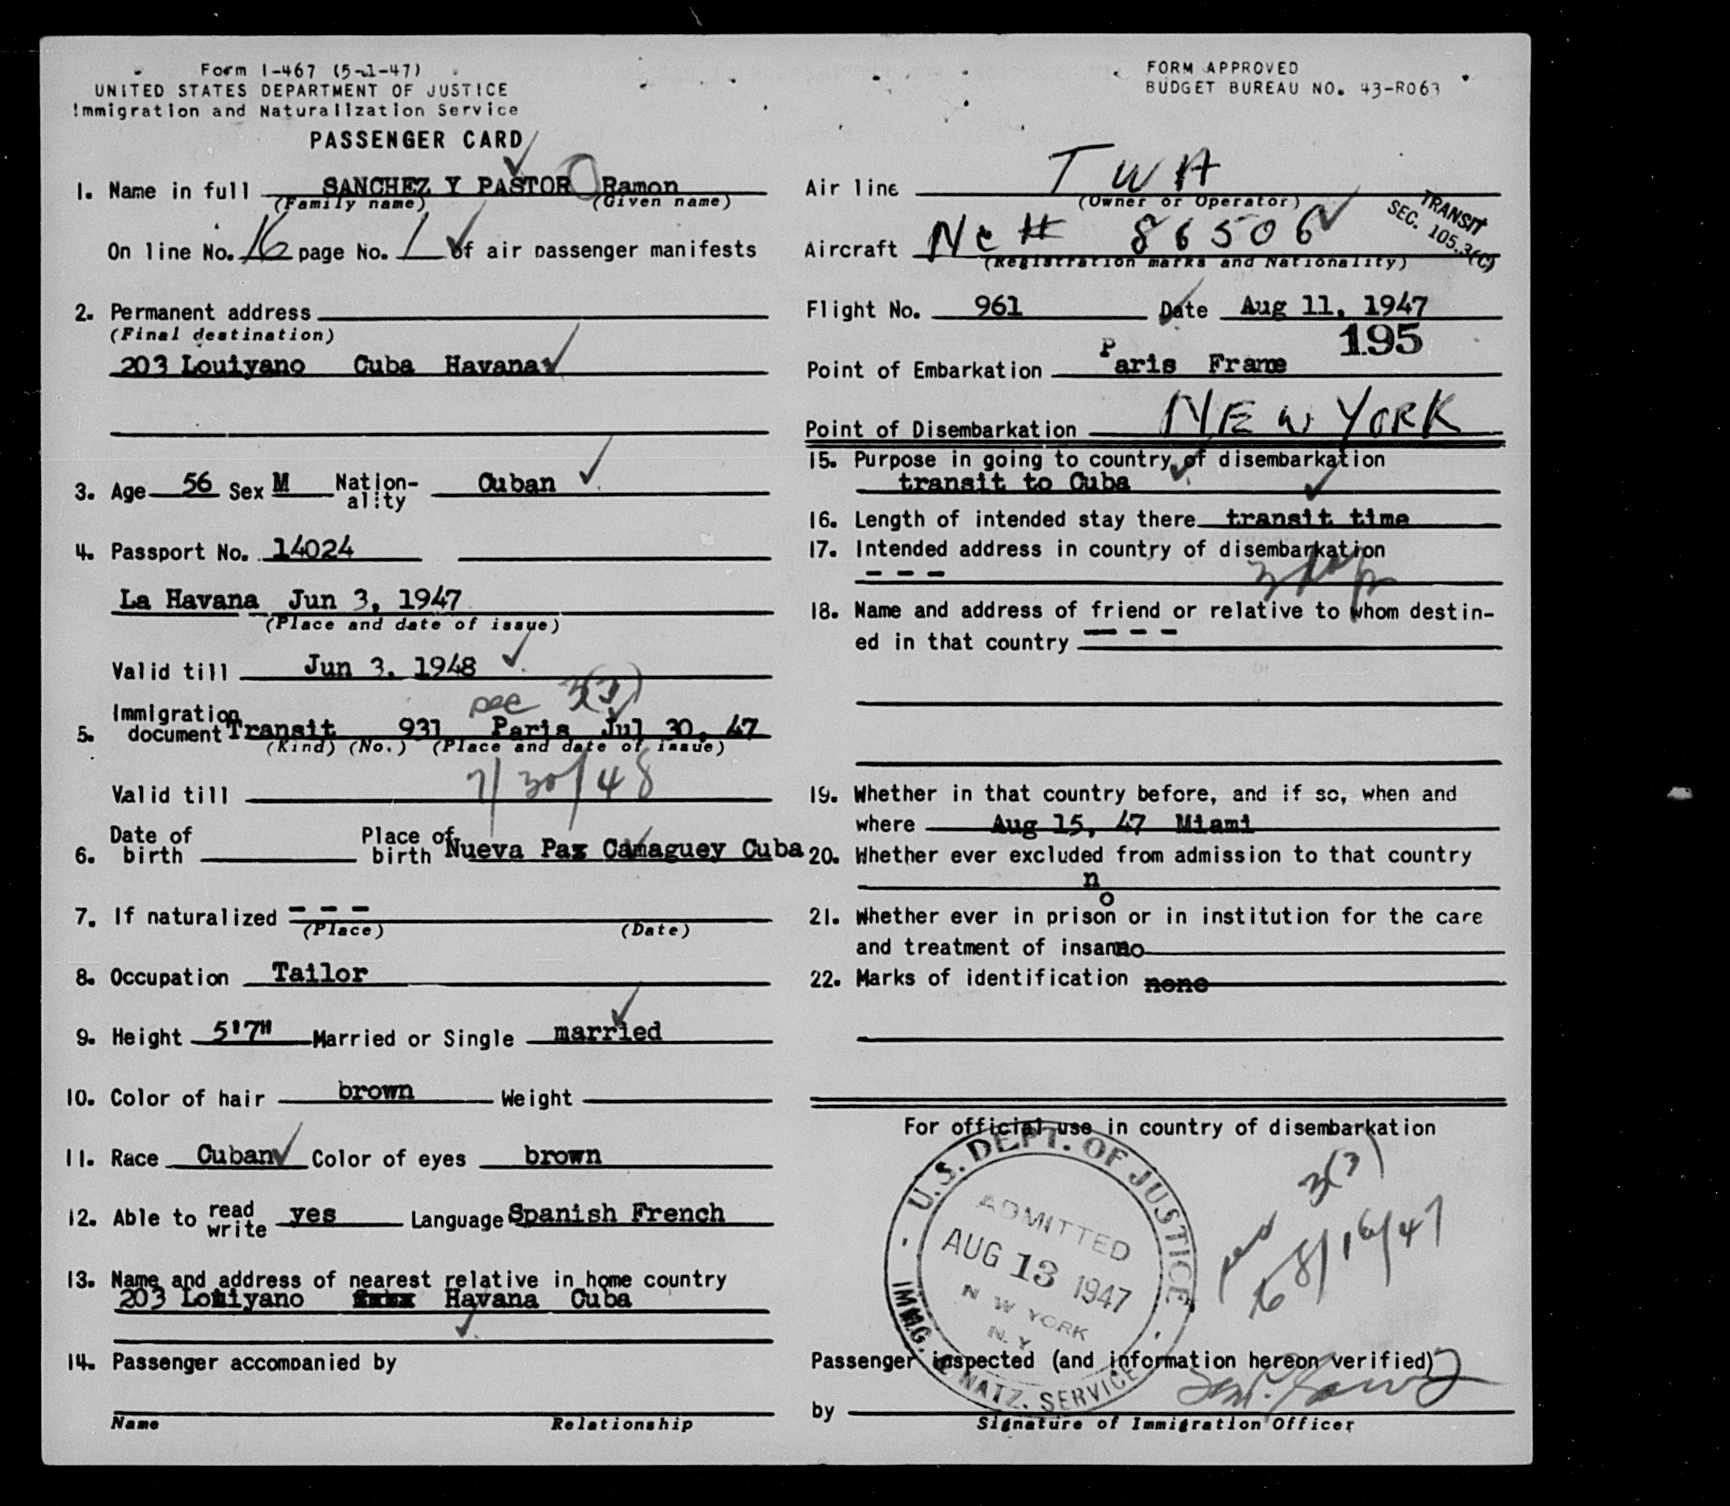 Form I-467 (5-1-47)
UNITED STATES DEPARTMENT OF JUSTICE
Immigration and Naturalization Service
PASSENGER CARD
FORM APPROVED
BUDGET BUREAU NO. 43-R063
1. Name in full SANCHEZ Y PASTOR Ramon
(Family name) (Given name)
On line No. 16 page No. 1 of air passenger manifests
2. Permanent address
(Final destination)
203 Louiyano Cuba Havana
3. Age 56 Sex M Nation-ality Cuban
4. Passport No. 14024
La Havana Jun 3, 1947
(Place and date of issue)
Valid till Jun 3. 1948
sec 3(3)
5. Immigration document Transit 931 Paris Jul 30, 47
(Kind) (No.) (Place and date of issue)
Valid till 7/30/48
6. Date of birth Place of birth Nueva Paz Camaguey Cuba
7. If naturalized - - -
(Place) (Date)
8. Occupation Tailor
9. Height 5'7" Married or Single married
10. Color of hair brown Weight
11. Race Cuban Color of eyes brown
12. Able to read write yes Language Spanish French
13. Name and address of nearest relative in home country
203 Louiyano Havana Cuba
14. Passenger accompanied by
Name Relationship
Air line TWA
(Owner or Operator)
TRANSIT
SEC. 105.3(C)
Aircraft Nc # 86506
(Registration marks and Nationality)
Flight No. 961 Date Aug 11, 1947
195
Point of Embarkation Paris Frame
Point of Disembarkation NEW YORK
15. Purpose in going to country of disembarkation
transit to Cuba
16. Length of intended stay there transit time
17. Intended address in country of disembarkation
- - -
18. Name and address of friend or relative to whom destin-
ed in that country - - -
19. Whether in that country before, and if so, when and
where Aug 15, 47 Miami
20. Whether ever excluded from admission to that country
no
21. Whether ever in prison or in institution for the care
and treatment of insane no
22. Marks of identification none
For official use in country of disembarkation
U.S. DEPT. OF JUSTICE
ADMITTED
AUG 13 1947
N W YORK
N. Y
IMMG. & NATZ. SERVICE
3(3)
to 8/16/47
Passenger inspected (and information hereon verified)
by
Signature of Immigration Officer